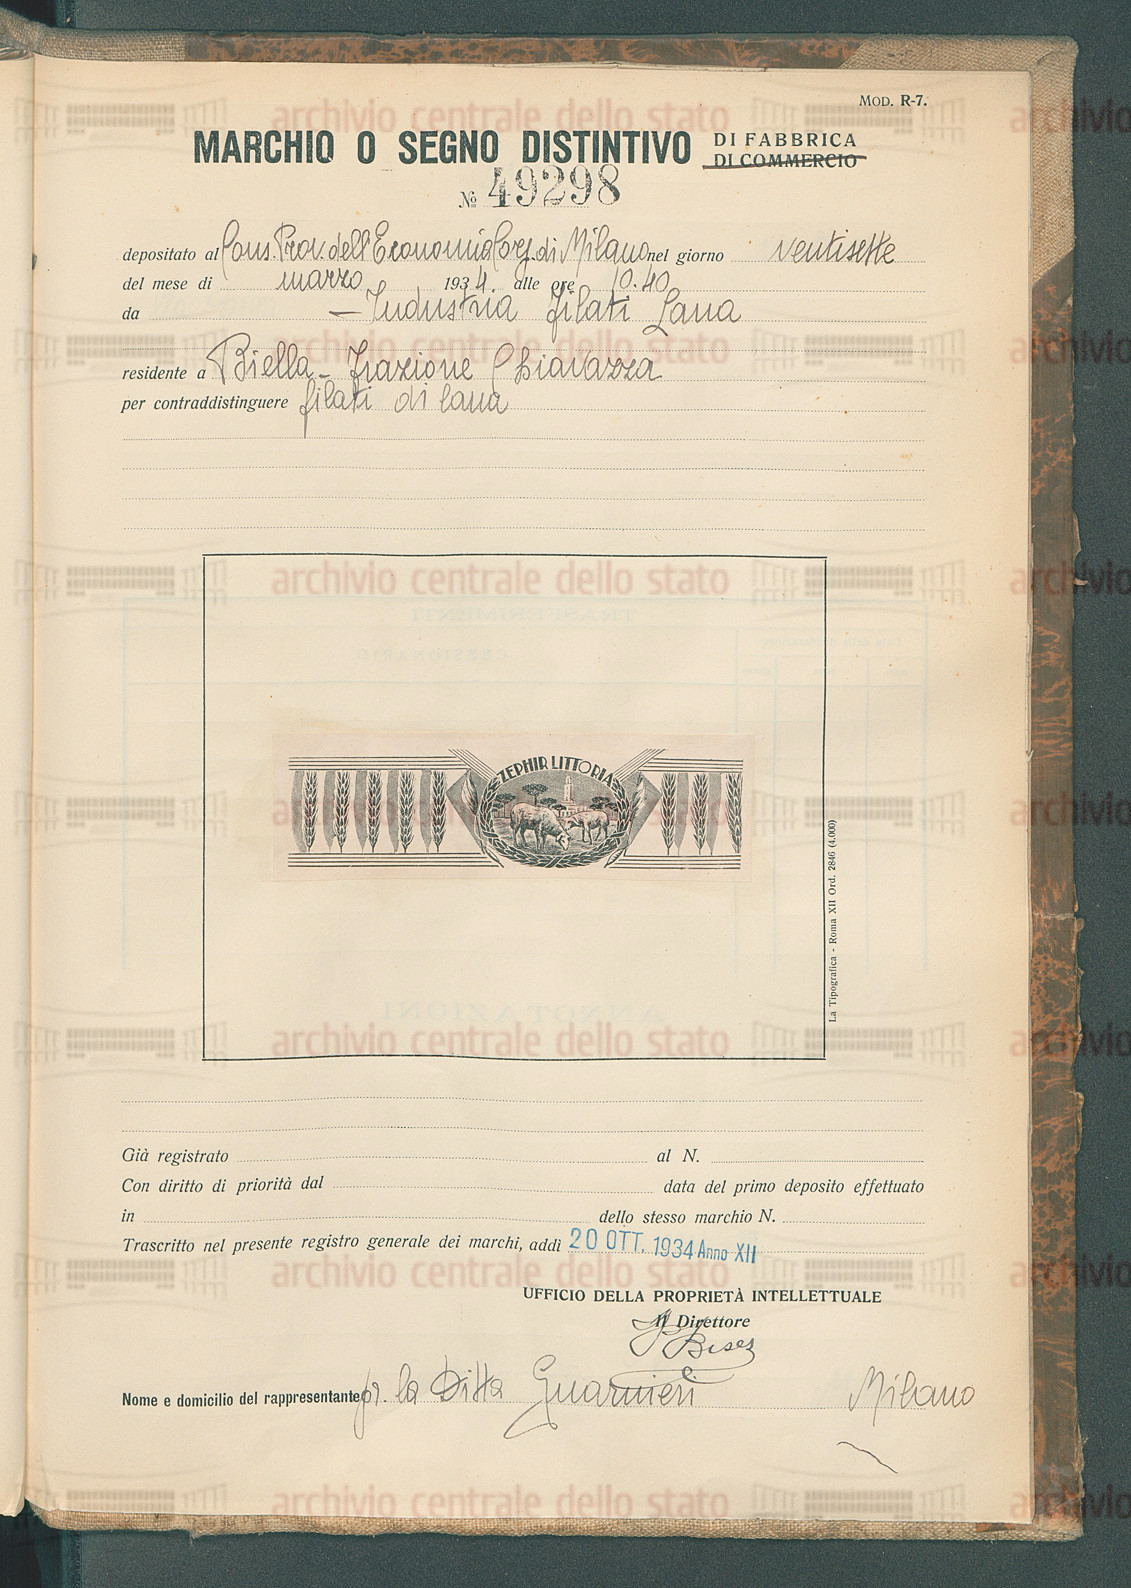 MOD. R-7.
MARCHIO O SEGNO DISTINTIVO DI FABBRICA
DI COMMERCIO
No 49298
depositato al Cons. Prov. dell'Economia Corp. di Milano nel giorno ventisette
del mese di marzo 1934. alle ore 10.40
da — Industria Filati Lana
residente a Biella - Frazione Chiavazza
per contraddistinguere filati di lana
ZEPHIR LITTORIA
La Tipografica - Roma XII Ord. 2846 (4.000)
Già registrato al N.
Con diritto di priorità dal data del primo deposito effettuato
in dello stesso marchio N.
Trascritto nel presente registro generale dei marchi, addì 20 OTT. 1934 Anno XII
UFFICIO DELLA PROPRIETÀ INTELLETTUALE
Il Direttore
Nome e domicilio del rappresentante pr. la Ditta Guarnieri Milano
archivio centrale dello stato